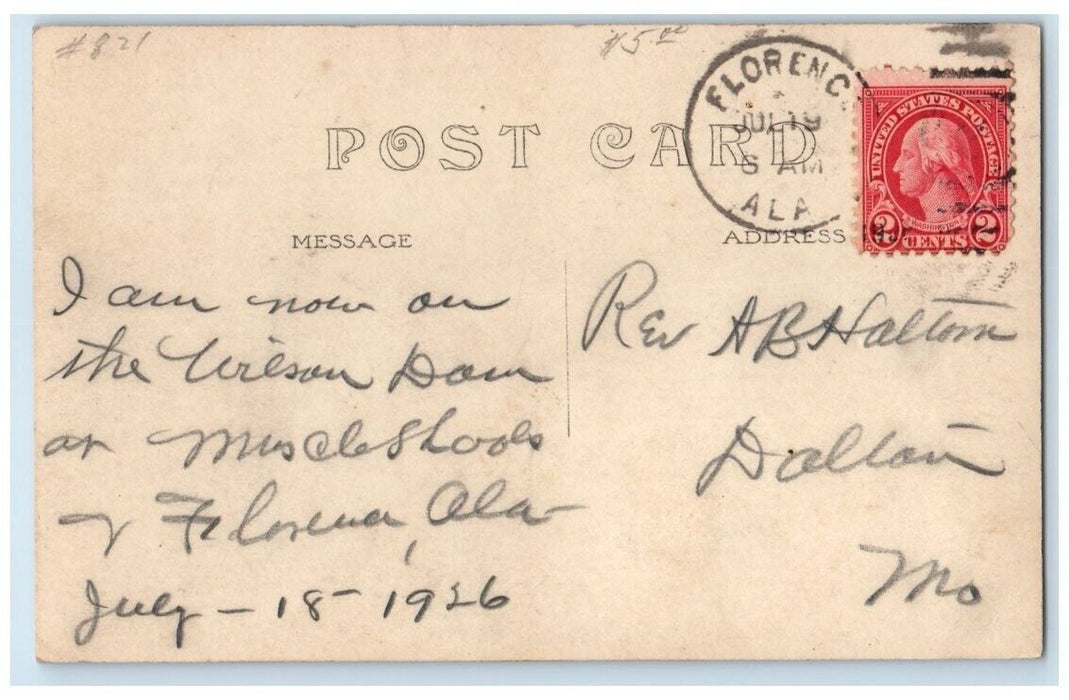 #821
$5.00
FLORENC
JUL 19
AM
ALA
UNITED STATES POSTAGE
WASHINGTON
2 CENTS 2
POST CARD
MESSAGE
ADDRESS
I am now on
the Wilson Dam
at Muscle Shoals
Florence, Ala
July - 18 - 1926
Rev AB Haltom
Dalton
Mo